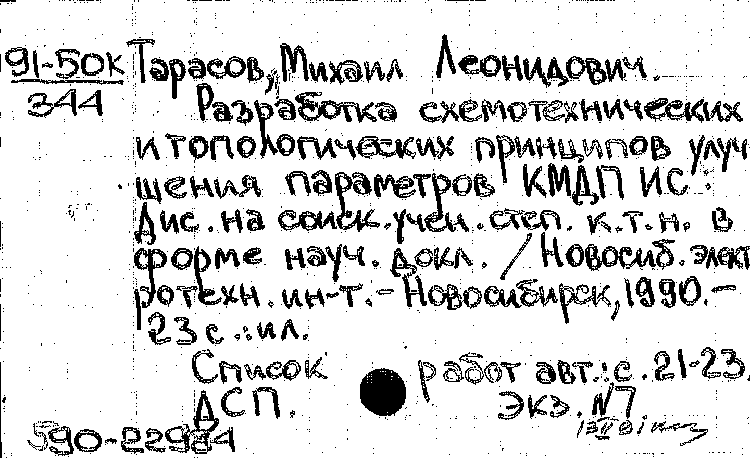 91-50к Тарасов, Михаил Леонидович.
344 Разработка схемотехнических
и топологических принципов улуч
шения параметров КМДП ИС:
Дис. на соиск. учен. степ. к.т.н. в
форме науч. докл. / Новосиб. элект
ротехн. ин-т. - Новосибирск, 1990. -
23 с.: ил.
Список работ авт.: с. 21-23.
ДСП. Экз. №7
590-22984